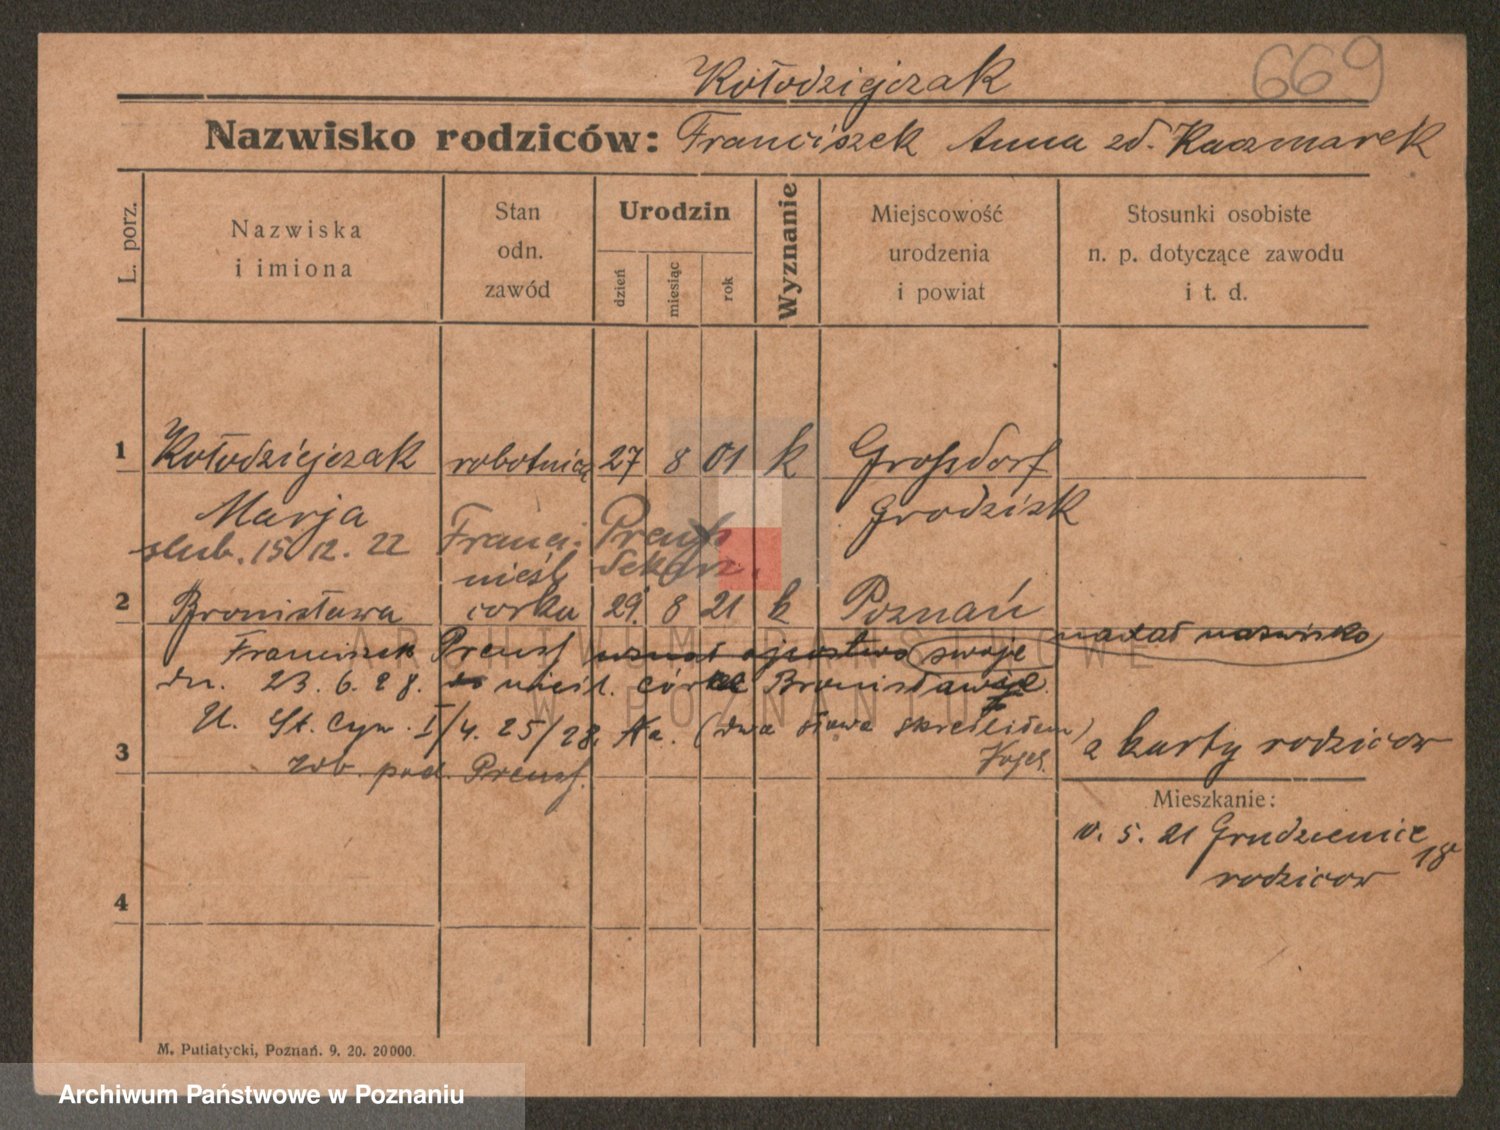 669
Kołodziejczak
Nazwisko rodziców: Franciszek Anna zd. Kaczmarek
L. porz.
Nazwiska
i imiona
Stan
odn.
zawód
Urodzin
dzień
miesiąc
rok
Wyznanie
Miejscowość
urodzenia
i powiat
Stosunki osobiste
n. p. dotyczące zawodu
i t. d.
1 Kołodziejczak robotnica 27 8 01 k Großdorf
Marja Grodzisk
slub. 15 12. 22 Franci. Preuß
nieśl. Sekr.
2 Bronisława córka 29. 8 21 k Poznań
Franciszek Preuß uznał ojcostwo swoje nadał nazwisko
dn. 23. 6. 28. nieśl. córce Bronisławie.
U. St. Cyw. I/4. 25/28. Ha. (dwa słowa skreśliłem)
3 zob. pod. Preuß. z karty rodziców
Mieszkanie:
10. 5. 21 Grudzieniec 18
rodziców
4
M. Putiatycki, Poznań. 9. 20. 20000.
ARCHIWUM PAŃSTWOWE
W POZNANIU
Archiwum Państwowe w Poznaniu